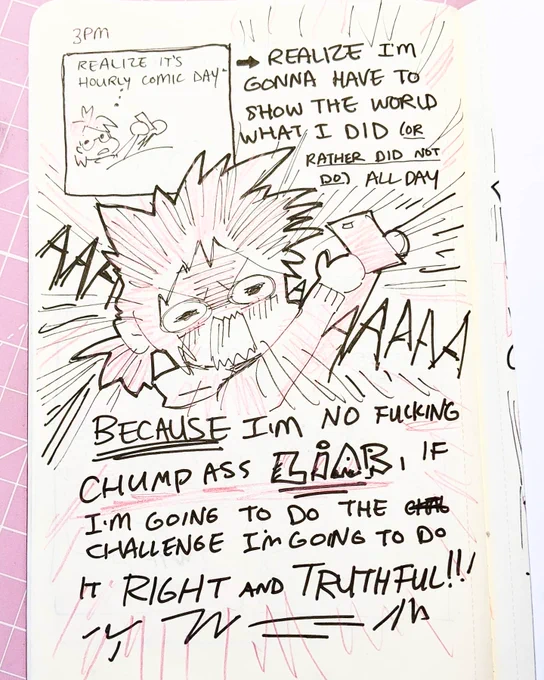 3PM
REALIZE IT'S
HOURLY COMIC DAY
→ REALIZE I'M
GONNA HAVE TO
SHOW THE WORLD
WHAT I DID (OR
RATHER DID NOT
DO) ALL DAY
AAA
AAAAA
BECAUSE I'M NO FUCKING
CHUMP ASS LIAR, IF
I'M GOING TO DO THE
CHALLENGE I'M GOING TO DO
IT RIGHT AND TRUTHFUL!!!